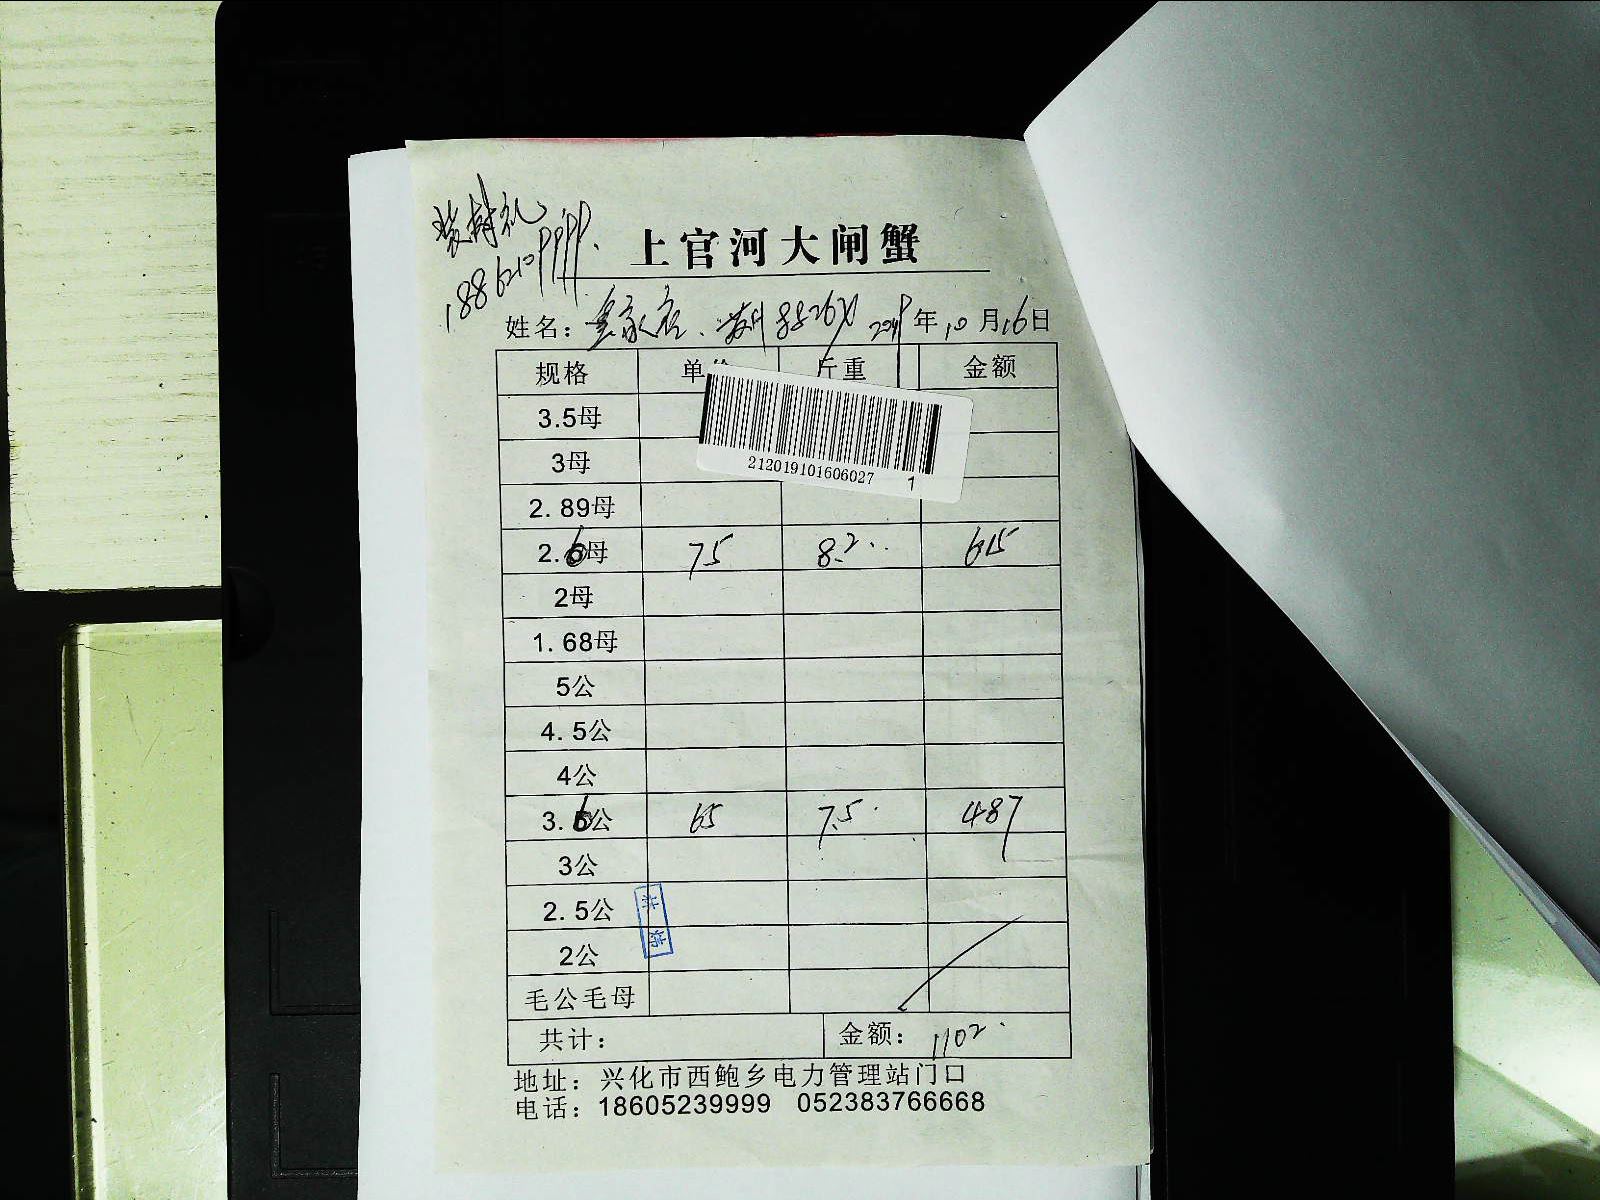 18862099999.
上官河大闸蟹
姓名： 2019年10月16日
规格 单 斤重 金额
3.5母
3母
212019101606027 1
2.89母
2.6母 75 8.2 615
2母
1.68母
5公
4.5公
4公
3.6公 65 7.5 487
3公
2.5公
2公
毛公毛母
共计： 金额：1102
地址：兴化市西鲍乡电力管理站门口
电话：18605239999 052383766668